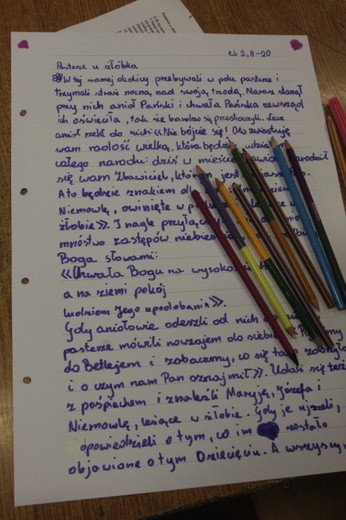 Łk 2, 8-20
Pasterze u żłóbka
W tej samej okolicy przebywali w polu pasterze i
trzymali straż nocną nad swoją trzodą. Naraz stanął
przy nich anioł Pański i chwała Pańska zewsząd
ich oświeciła, tak że bardzo się przestraszyli. Lecz
anioł rzekł do nich: «Nie bójcie się! Oto zwiastuję
wam radość wielką, która będzie udziałem
całego narodu: dziś w mieście narodził
się wam Zbawiciel, który jest
A to będzie znakiem dla
Niemowlę, owinięte w
żłobie». I nagle przyłączyło
mnóstwo zastępów niebieskich
Boga słowami:
«Chwała Bogu na wysokościach
a na ziemi pokój
ludziom Jego upodobania».
Gdy aniołowie odeszli od nich do
pasterze mówili nawzajem do siebie:
do Betlejem i zobaczmy, co się tam
i o czym nam Pan oznajmił». Udali się też
z pośpiechem i znaleźli Maryję, Józefa i
Niemowlę, leżące w żłobie. Gdy je ujrzeli,
opowiedzieli o tym, co im zostało
objawione o tym Dziecięciu. A wszyscy,